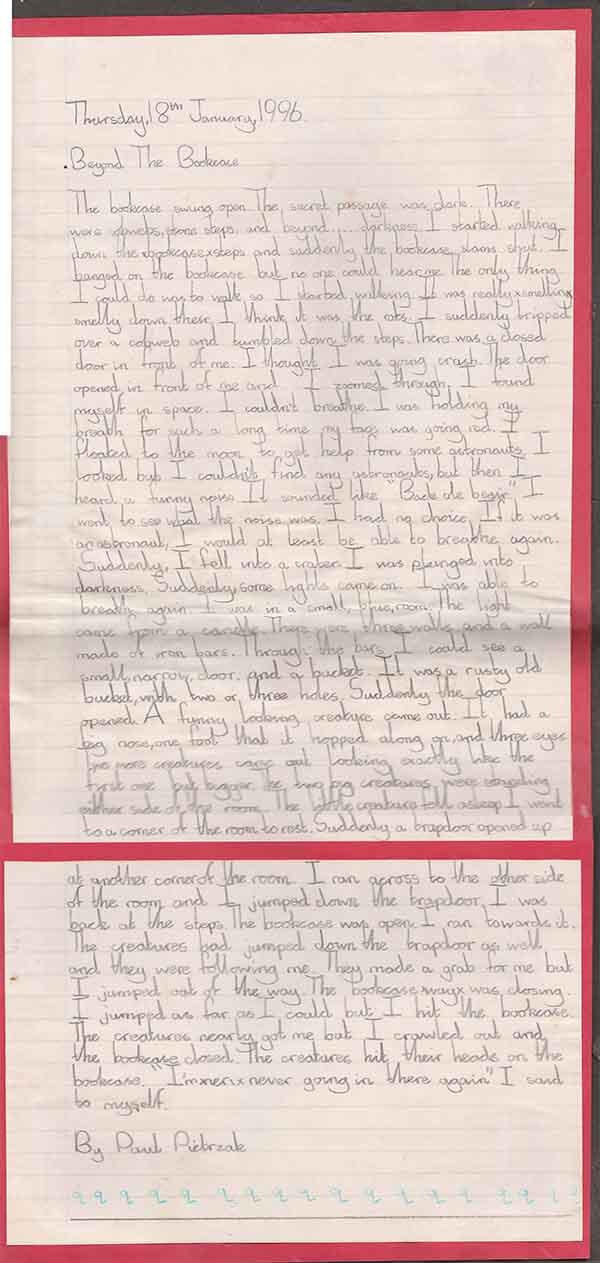 Thursday, 18th January, 1996.
Beyond The Bookcase
The bookcase swung open. The secret passage was dark. There
were cobwebs, stone steps, and beyond.... darkness. I started walking
down the xbookcasexsteps and suddenly the bookcase slams shut. I
banged on the bookcase but no one could hear me. The only thing
I could do was to walk so I started walking. It was really xsmellinyx
smelly down there, I think it was the rats. I suddenly tripped
over a cobweb and tumbled down the steps. There was a closed
door in front of me. I thought I was going crash. The door
opened in front of me and I zoomed through. I found
myself in space. I couldn't breathe. I was holding my
breath for such a long time my face was going red. I
floated to the moon to get help from some astronauts. I
looked but I couldn't find any astronauts, but then I
heard a funny noise. It sounded like "Back de begir". I
went to see what the noise was. I had no choice. If it was
an astronaut, I would at least be able to breathe again.
Suddenly, I fell into a crater. I was plunged into
darkness. Suddenly, some lights came on. I was able to
breath again. I was in a small, blue, room. The light
came from a candle. There were three walls and a wall
made of iron bars. Through the bars I could see a
small, narrow, door, and a bucket. It was a rusty old
bucket, with two or three holes. Suddenly the door
opened. A funny looking creature came out. It had a
big nose, one foot that it hopped along on, and three eyes
two more creatures came out looking exactly like the
first one but bigger. The two big creatures were standing
either side of the room. The little creature fell asleep. I went
to a corner of the room to rest. Suddenly a trapdoor opened up
at another corner of the room. I ran across to the other side
of the room and I jumped down the trapdoor. I was
back at the steps. The bookcase was open. I ran towards it.
The creatures had jumped down the trapdoor as well
and they were following me. They made a grab for me but
I jumped out of the way. The bookcase xwayx was closing.
I jumped as far as I could but I hit the bookcase.
The creatures nearly got me but I crawled out and
the bookcase closed. The creatures hit their heads on the
bookcase. "I'm xnerix never going in there again" I said
to myself.
By Paul Pietrzak